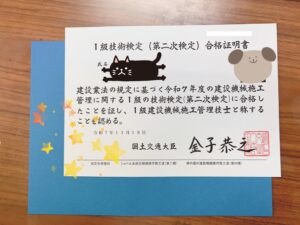 1級技術検定（第二次検定）合格証明書
氏名
建設業法の規定に基づく令和7年度の建設機械施工
管理に関する1級の技術検定(第二次検定)に合格し
たことを証し、1級建設機械施工管理技士と称する
ことを認める。
国土交通大臣 金子恭之